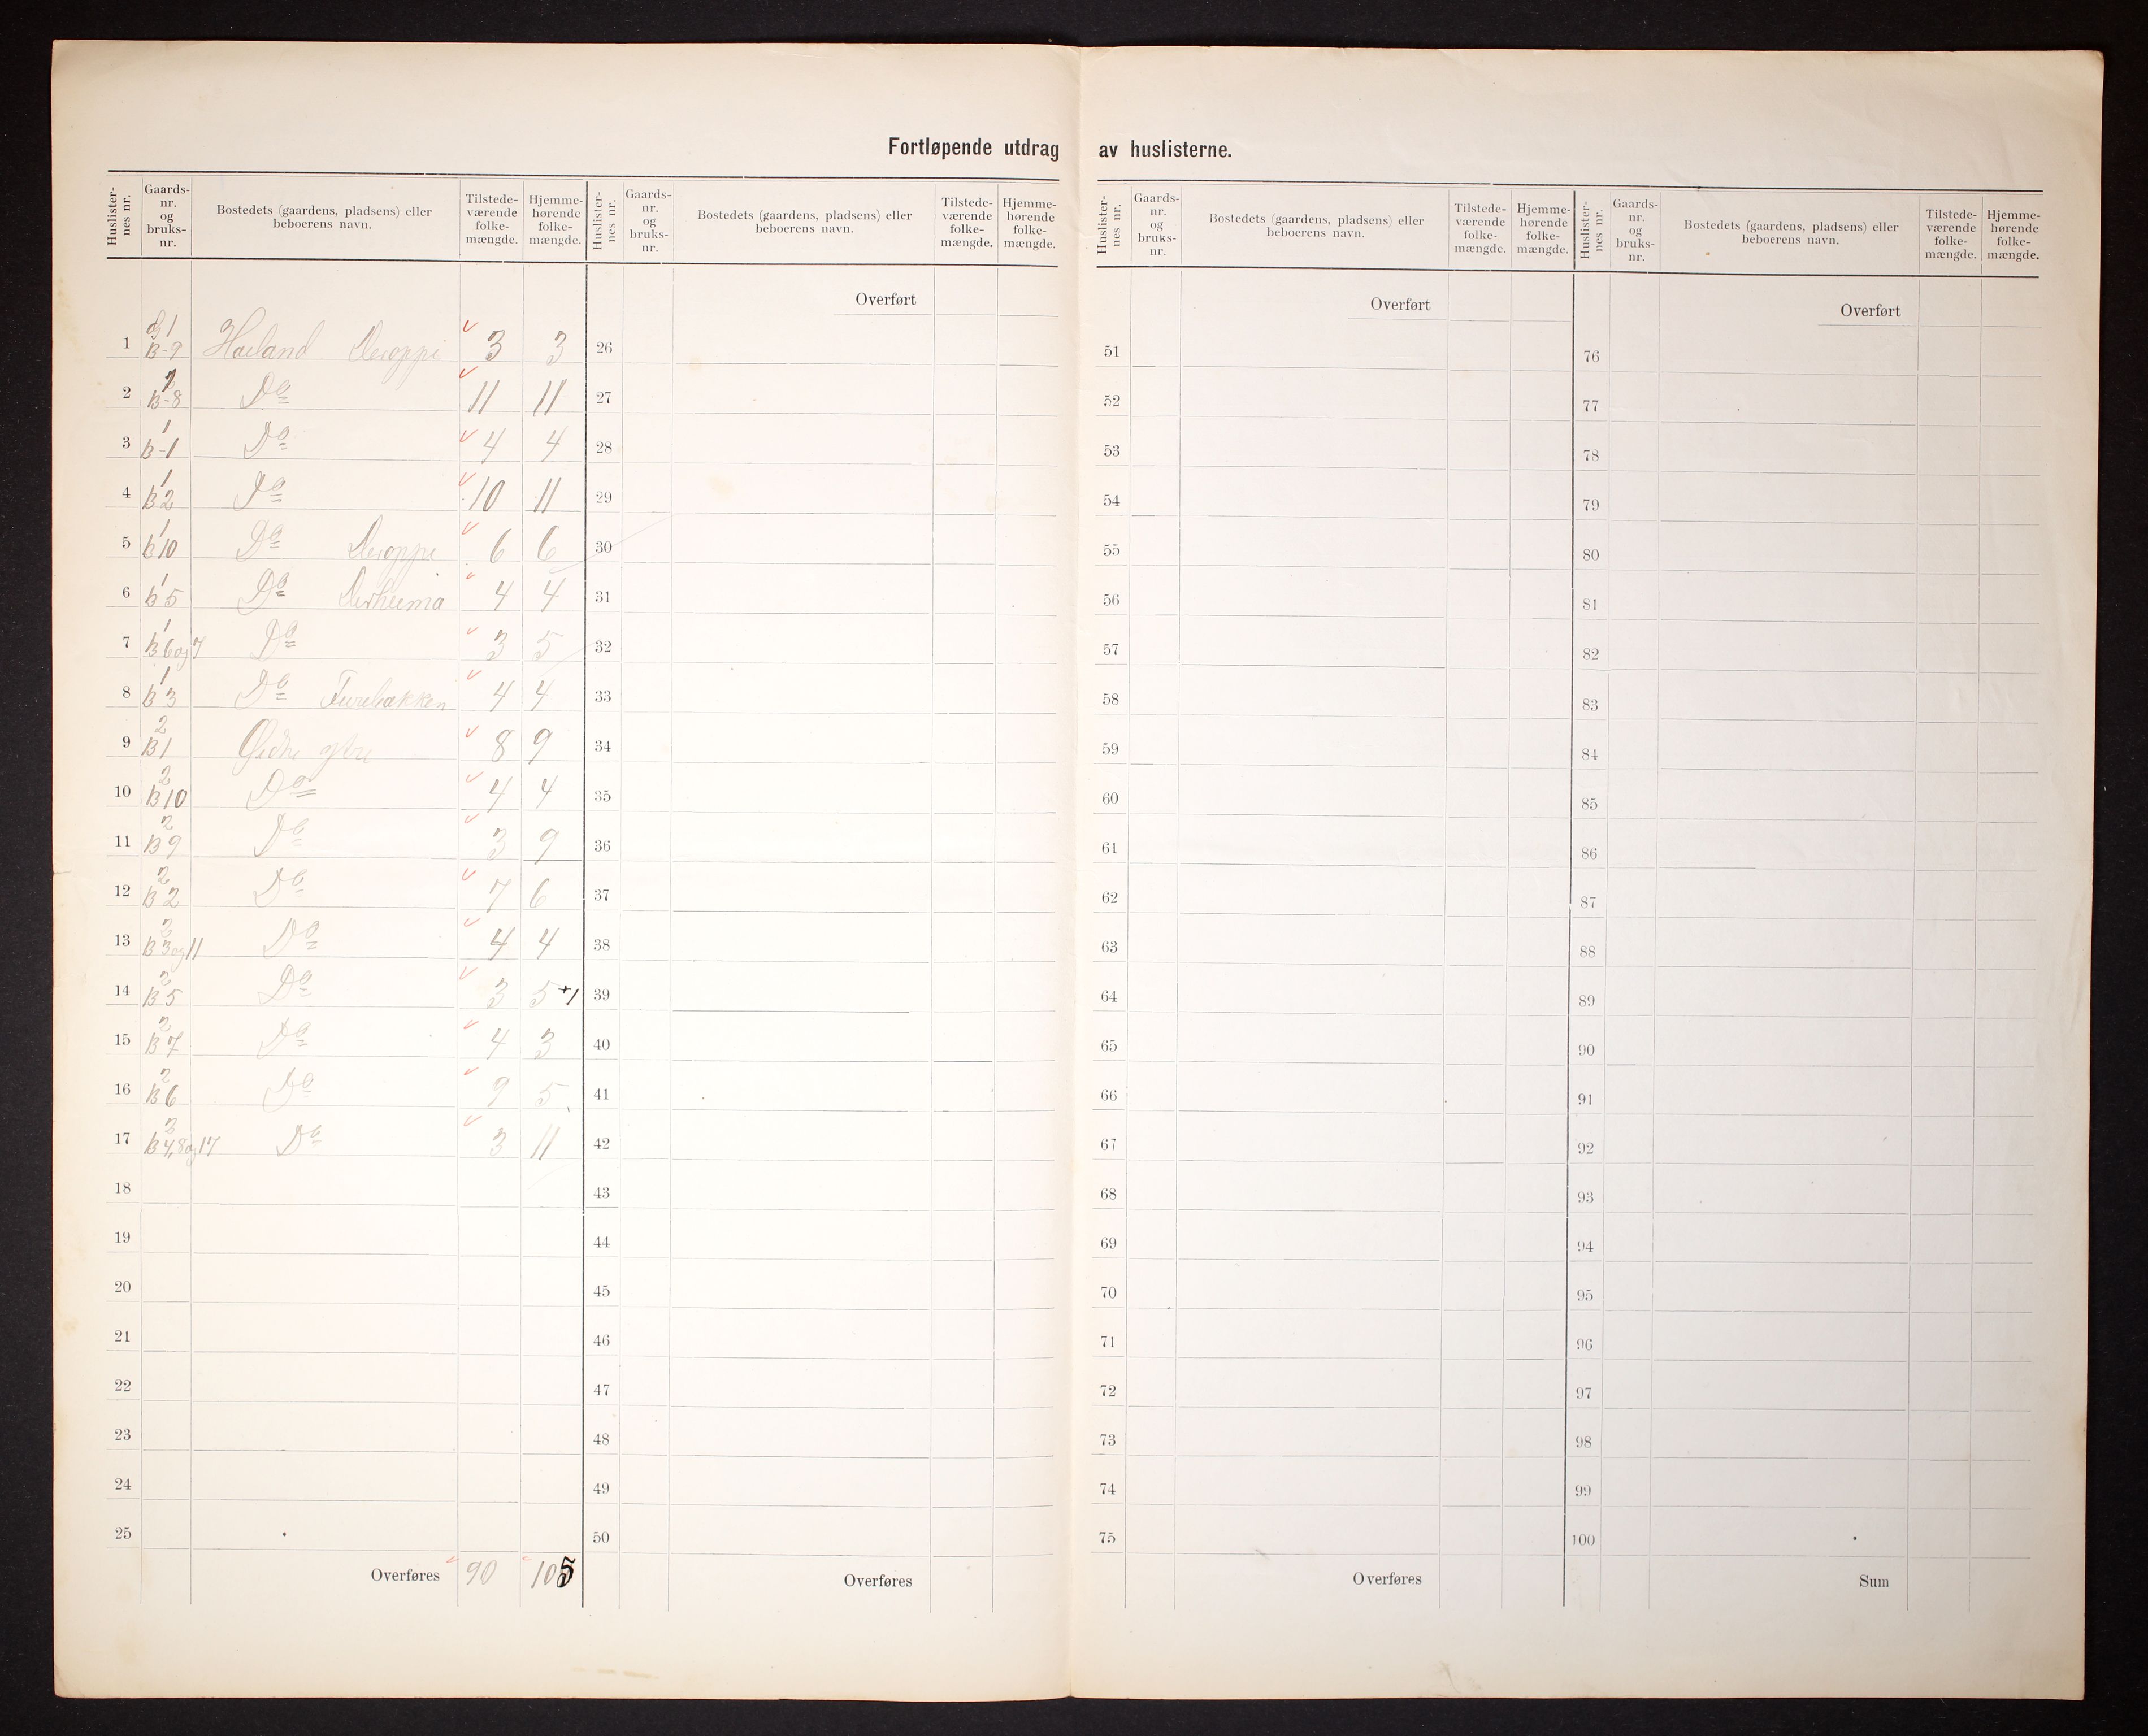 Fortløpende utdrag av huslisterne.
Huslister-nes nr. Gaards-nr. og bruks-nr. Bostedets (gaardens, pladsens) eller beboerens navn. Tilstede-værende folke-mængde. Hjemme-hørende folke-mængde.
Huslister-nes nr. Gaards-nr. og bruks-nr. Bostedets (gaardens, pladsens) eller beboerens navn. Tilstede-værende folke-mængde. Hjemme-hørende folke-mængde.
Huslister-nes nr. Gaards-nr. og bruks-nr. Bostedets (gaardens, pladsens) eller beboerens navn. Tilstede-værende folke-mængde. Hjemme-hørende folke-mængde.
Huslister-nes nr. Gaards-nr. og bruks-nr. Bostedets (gaardens, pladsens) eller beboerens navn. Tilstede-værende folke-mængde. Hjemme-hørende folke-mængde.
1 G 1 B-9 Høiland Deroppi 3 3
2 1 B-8 Do 11 11
3 1 B-1 Do 4 4
4 1 B 2 Do 10 11
5 1 b 10 Do Deroppi 6 6
6 1 B 5 Do Derheima 4 4
7 1 B 6 og 7 Do 3 5
8 1 B 3 Do Furebakken 4 4
9 2 B 1 8 9
10 2 B 10 Do 4 4
11 2 B 9 Do 3 9
12 2 B 2 Do 7 6
13 2 B 3 og 11 Do 4 4
14 2 B 5 Do 3 5 +1
15 2 B 7 Do 4 3
16 2 B 6 Do 9 5
17 2 B 4, 8 og 17 Do 3 11
18
19
20
21
22
23
24
25
Overføres 90 105
Overført
26
27
28
29
30
31
32
33
34
35
36
37
38
39
40
41
42
43
44
45
46
47
48
49
50
Overføres
Overført
51
52
53
54
55
56
57
58
59
60
61
62
63
64
65
66
67
68
69
70
71
72
73
74
75
Overføres
Overført
76
77
78
79
80
81
82
83
84
85
86
87
88
89
90
91
92
93
94
95
96
97
98
99
100
Sum